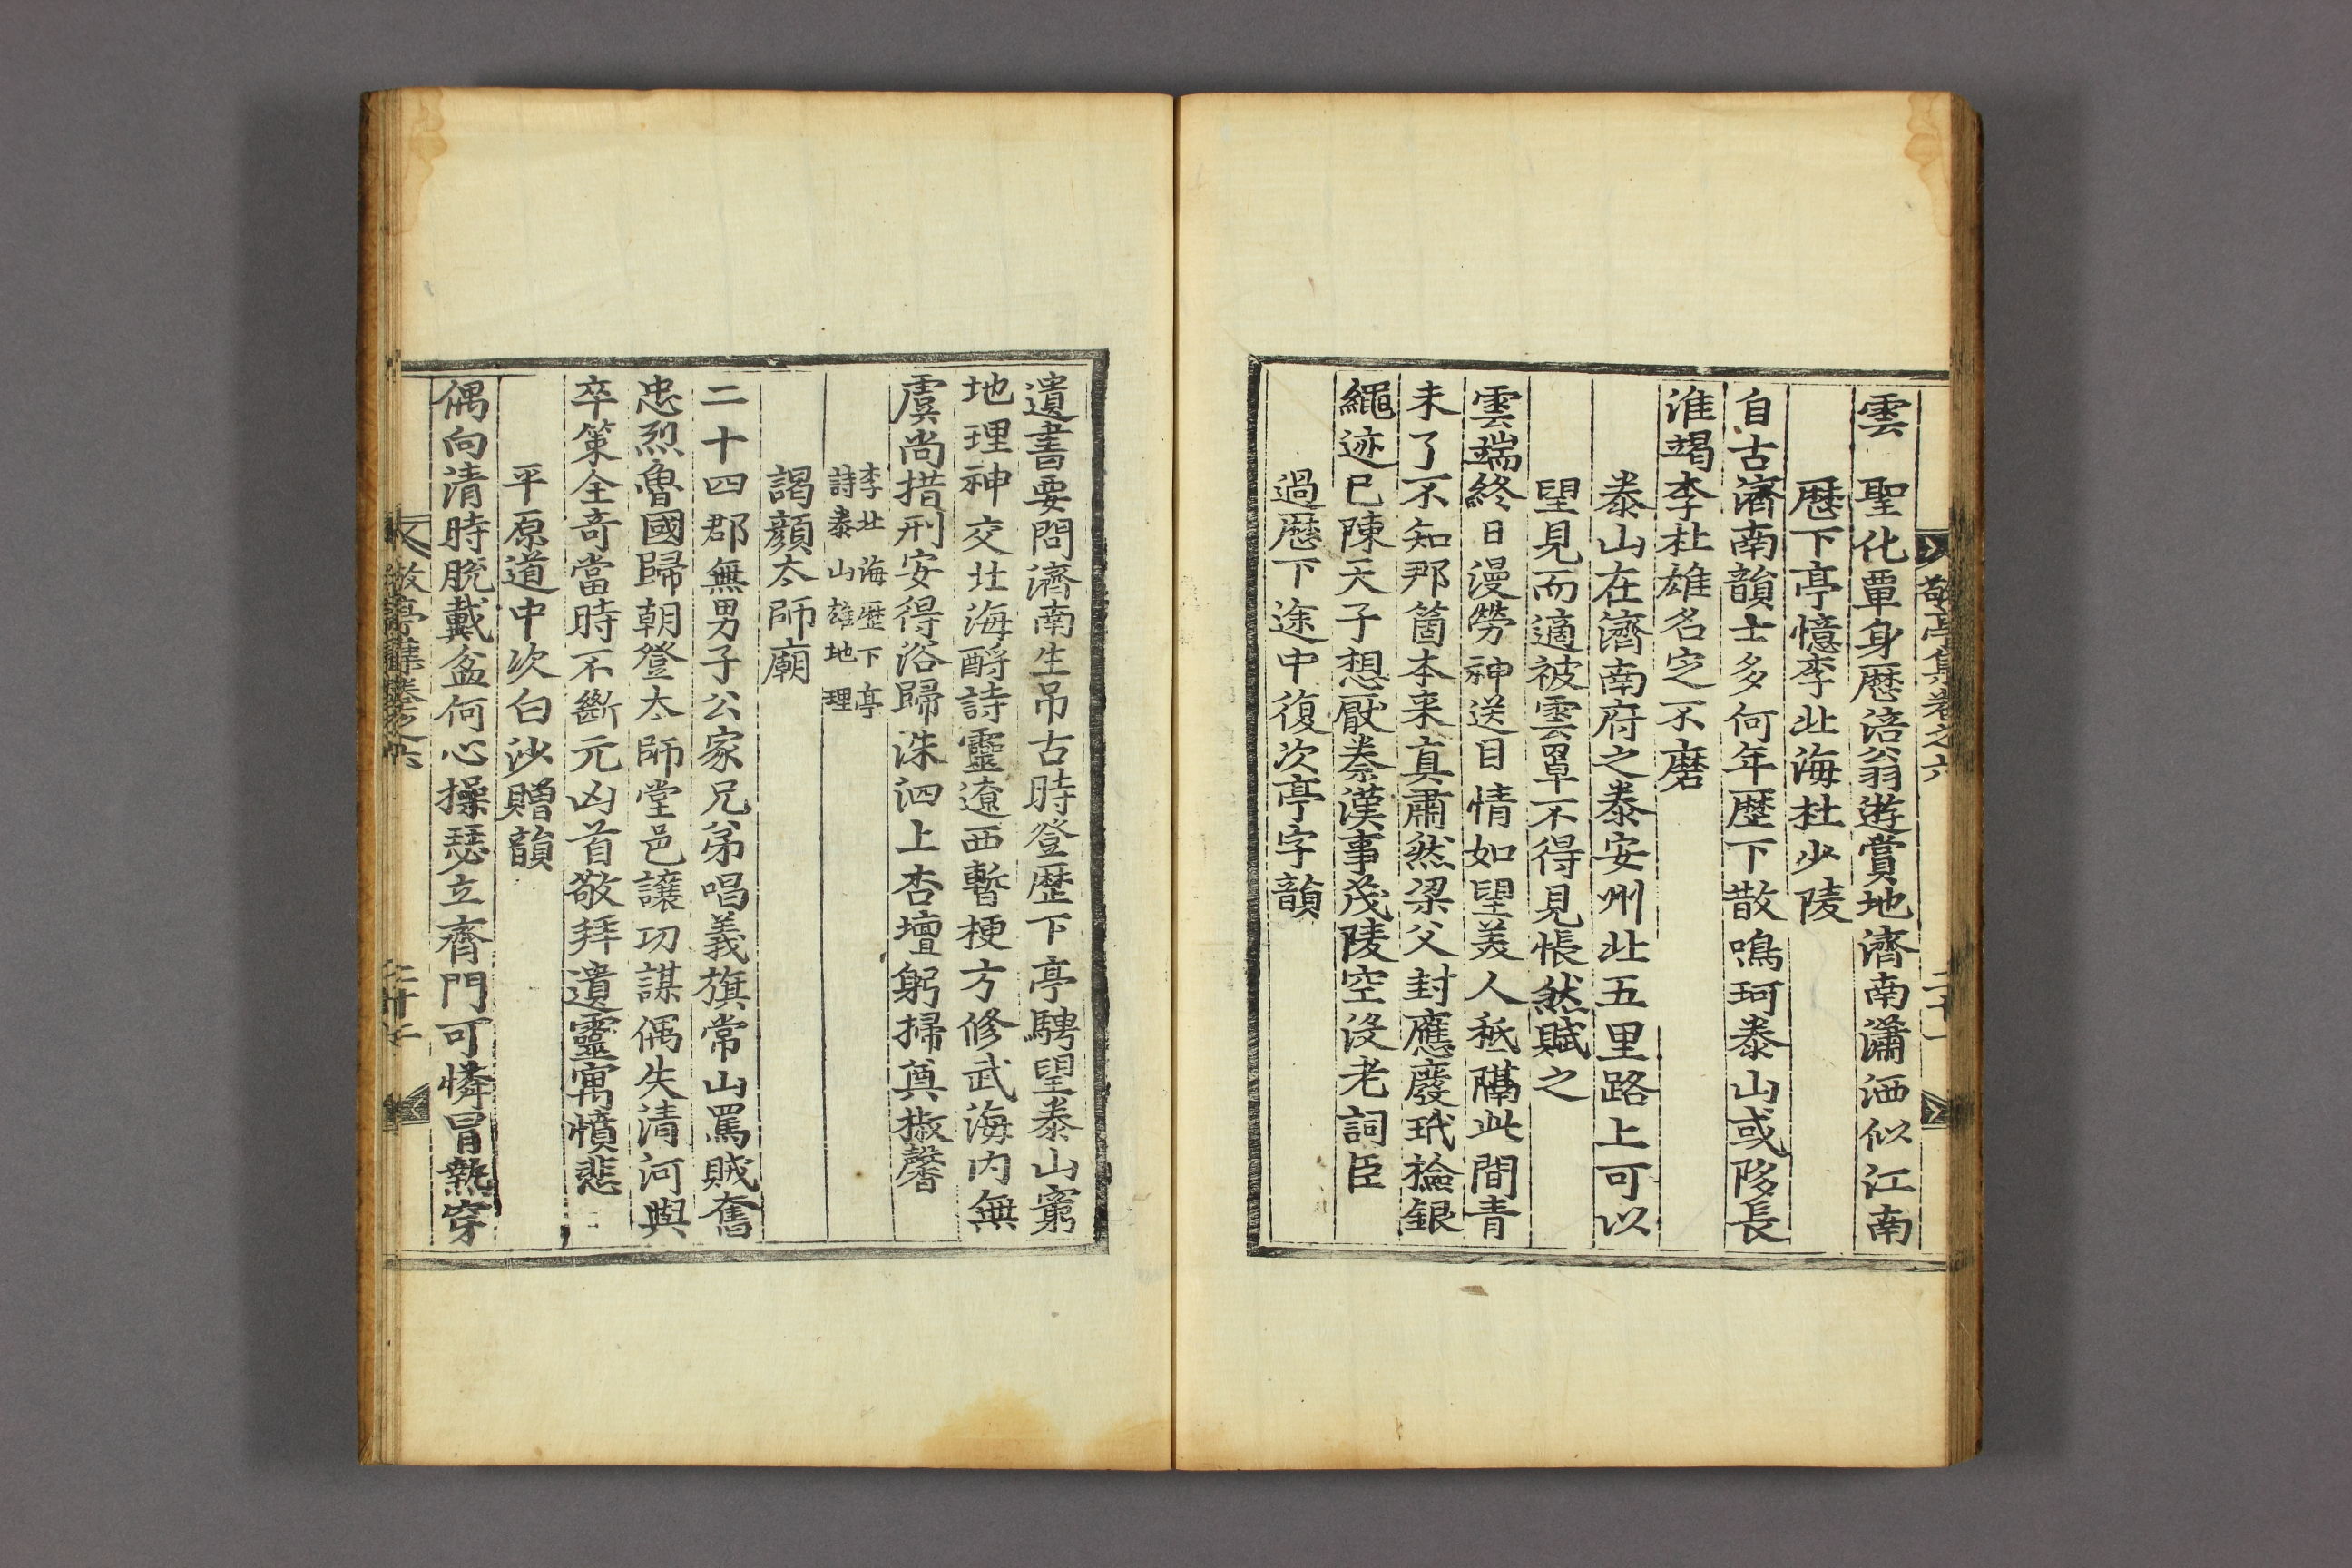 敬亭集卷之六 二十一
雲　聖化覃身歷涪翁遊賞地濟南瀟洒似江南
歷下亭憶李北海杜少陵
自古濟南韻士多何年歷下散鳴珂泰山或陊長
淮竭李杜雄名定不磨
泰山在濟南府之泰安州北五里路上可以
望見而適被雲罩不得見悵然賦之
雲端終日漫勞神送目情如望美人秪隔此間青
未了不知那箇本来真肅然梁父封應廢玳檢銀
繩迹已陳天子想厭秦漢事茂陵空沒老詞臣
過歷下途中復次亭字韻
遺書要問濟南生吊古時登歷下亭騁望泰山窮
地理神交北海酹詩靈遼西暫梗方修武海内無
虞尚措刑安得浴歸洙泗上杏壇躬掃奠椒馨
李北海歷下亭
詩泰山雄地理
謁顔太師廟
二十四郡無男子公家兄弟唱義旗常山罵賊奮
忠烈魯國歸朝登太師堂邑讓功謀偶失清河與
卒策全奇當時不斷元凶首敬拜遺靈寓憤悲
平原道中次白沙贈韻
偶向清時脫戴盆何心操瑟立齊門可憐冒熱穿